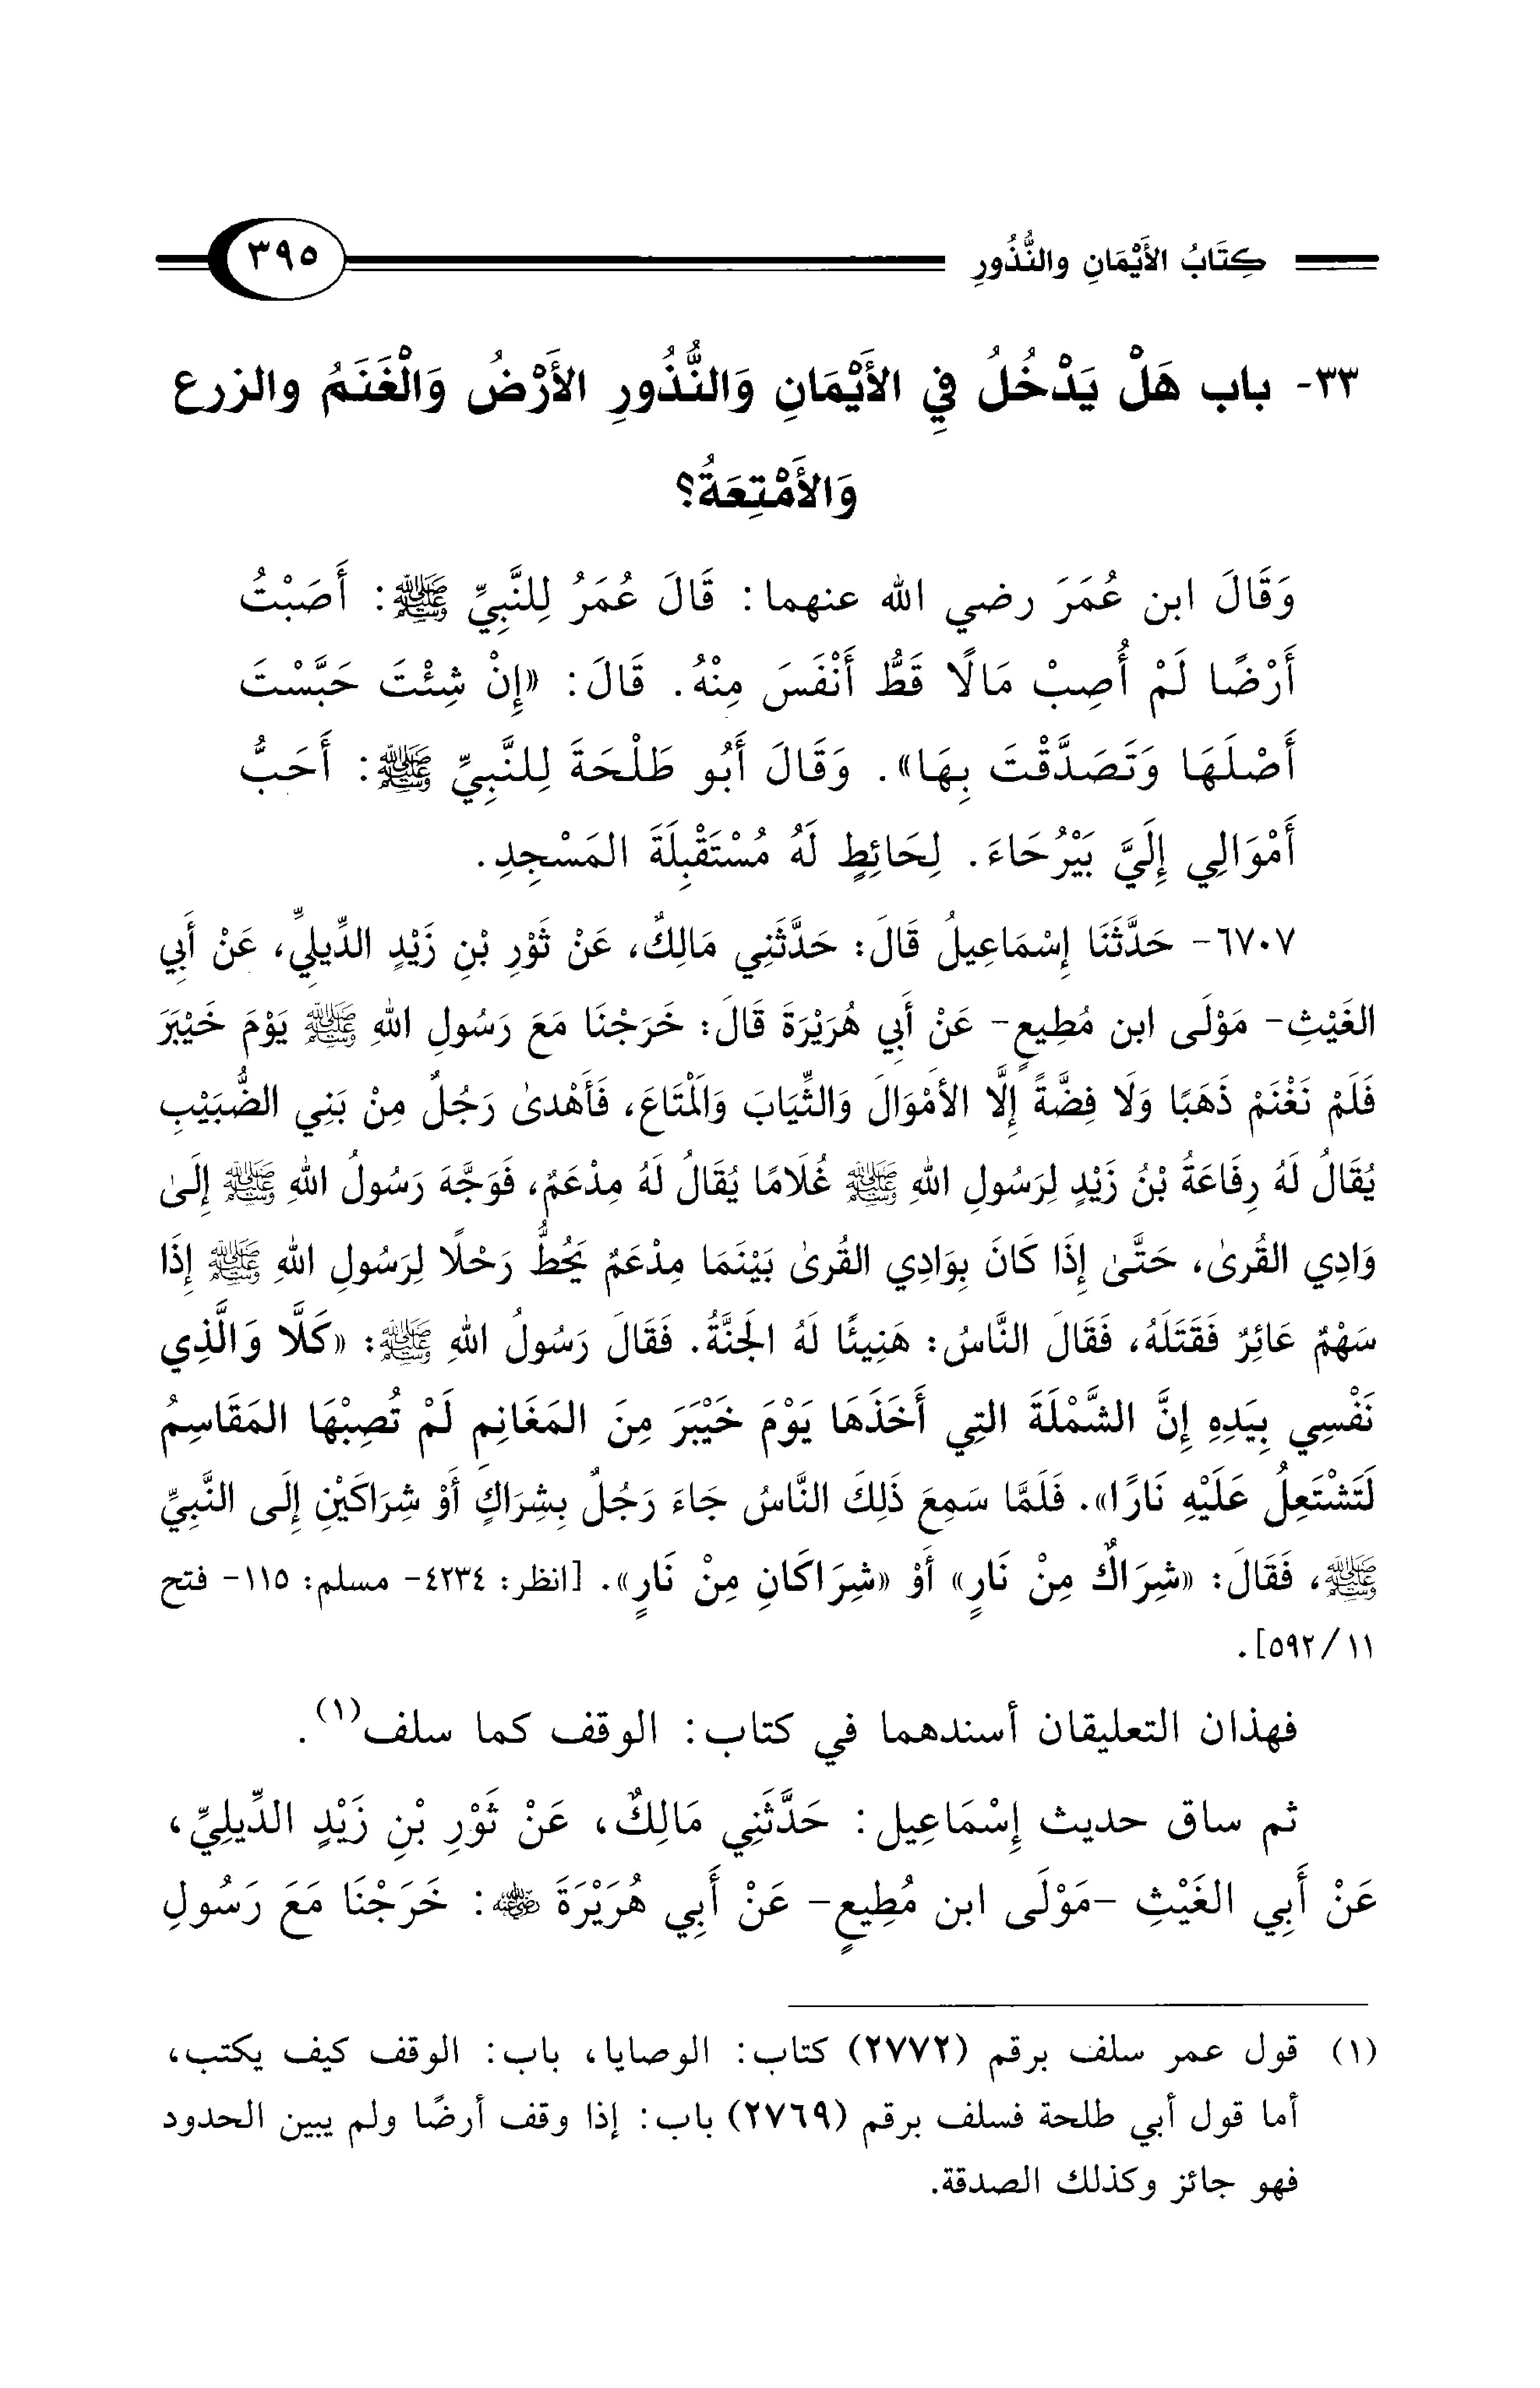 كِتَابُ الأَيْمَانِ والنُّذُورِ
٣٩٥
٣٣- باب هَلْ يَدْخُلُ فِي الأَيْمَانِ وَالنُّذُورِ الأَرْضُ وَالْغَنَمُ والزرع
وَالأَمْتِعَةُ؟
وَقَالَ ابن عُمَرَ رضي الله عنهما: قَالَ عُمَرُ لِلنَّبِيِّ ﷺ: أَصَبْتُ
أَرْضًا لَمْ أُصِبْ مَالًا قَطُّ أَنْفَسَ مِنْهُ. قَالَ: «إِنْ شِئْتَ حَبَّسْتَ
أَصْلَهَا وَتَصَدَّقْتَ بِهَا». وَقَالَ أَبُو طَلْحَةَ لِلنَّبِيِّ ﷺ: أَحَبُّ
أَمْوَالِي إِلَيَّ بَيْرُحَاءَ. لِحَائِطٍ لَهُ مُسْتَقْبِلَةَ المَسْجِدِ.
٦٧٠٧- حَدَّثَنَا إِسْمَاعِيلُ قَالَ: حَدَّثَنِي مَالِكٌ، عَنْ ثَوْرِ بْنِ زَيْدٍ الدِّيلِيِّ، عَنْ أَبِي
الغَيْثِ- مَوْلَى ابن مُطِيعٍ- عَنْ أَبِي هُرَيْرَةَ قَالَ: خَرَجْنَا مَعَ رَسُولِ اللهِ ﷺ يَوْمَ خَيْبَرَ
فَلَمْ نَغْنَمْ ذَهَبًا وَلَا فِضَّةً إِلَّا الأَمْوَالَ وَالثِّيَابَ وَالْمَتَاعَ، فَأَهْدىٰ رَجُلٌ مِنْ بَنِي الضُّبَيْبِ
يُقَالُ لَهُ رِفَاعَةُ بْنُ زَيْدٍ لِرَسُولِ اللهِ ﷺ غُلَامًا يُقَالُ لَهُ مِدْعَمٌ، فَوَجَّهَ رَسُولُ اللهِ ﷺ إِلَىٰ
وَادِي القُرىٰ، حَتَّىٰ إِذَا كَانَ بِوَادِي القُرىٰ بَيْنَمَا مِدْعَمٌ يَحُطُّ رَحْلًا لِرَسُولِ اللهِ ﷺ إِذَا
سَهْمٌ عَائِرٌ فَقَتَلَهُ، فَقَالَ النَّاسُ: هَنِيئًا لَهُ الجَنَّةُ. فَقَالَ رَسُولُ اللهِ ﷺ: «كَلَّا وَالَّذِي
نَفْسِي بِيَدِهِ إِنَّ الشَّمْلَةَ التِي أَخَذَهَا يَوْمَ خَيْبَرَ مِنَ المَغَانِمِ لَمْ تُصِبْهَا المَقَاسِمُ
لَتَشْتَعِلُ عَلَيْهِ نَارًا». فَلَمَّا سَمِعَ ذَلِكَ النَّاسُ جَاءَ رَجُلٌ بِشِرَاكٍ أَوْ شِرَاكَيْنِ إِلَى النَّبِيِّ
ﷺ، فَقَالَ: «شِرَاكٌ مِنْ نَارٍ» أَوْ «شِرَاكَانِ مِنْ نَارٍ». [انظر: ٤٢٣٤- مسلم: ١١٥- فتح
١١/ ٥٩٢].
فهذان التعليقان أسندهما في كتاب: الوقف كما سلف(١).
ثم ساق حديث إِسْمَاعِيل: حَدَّثَنِي مَالِكٌ، عَنْ ثَوْرِ بْنِ زَيْدٍ الدِّيلِيِّ،
عَنْ أَبِي الغَيْثِ -مَوْلَى ابن مُطِيعٍ- عَنْ أَبِي هُرَيْرَةَ رضي الله عنه: خَرَجْنَا مَعَ رَسُولِ
(١) قول عمر سلف برقم (٢٧٧٢) كتاب: الوصايا، باب: الوقف كيف يكتب،
أما قول أبي طلحة فسلف برقم (٢٧٦٩) باب: إذا وقف أرضًا ولم يبين الحدود
فهو جائز وكذلك الصدقة.